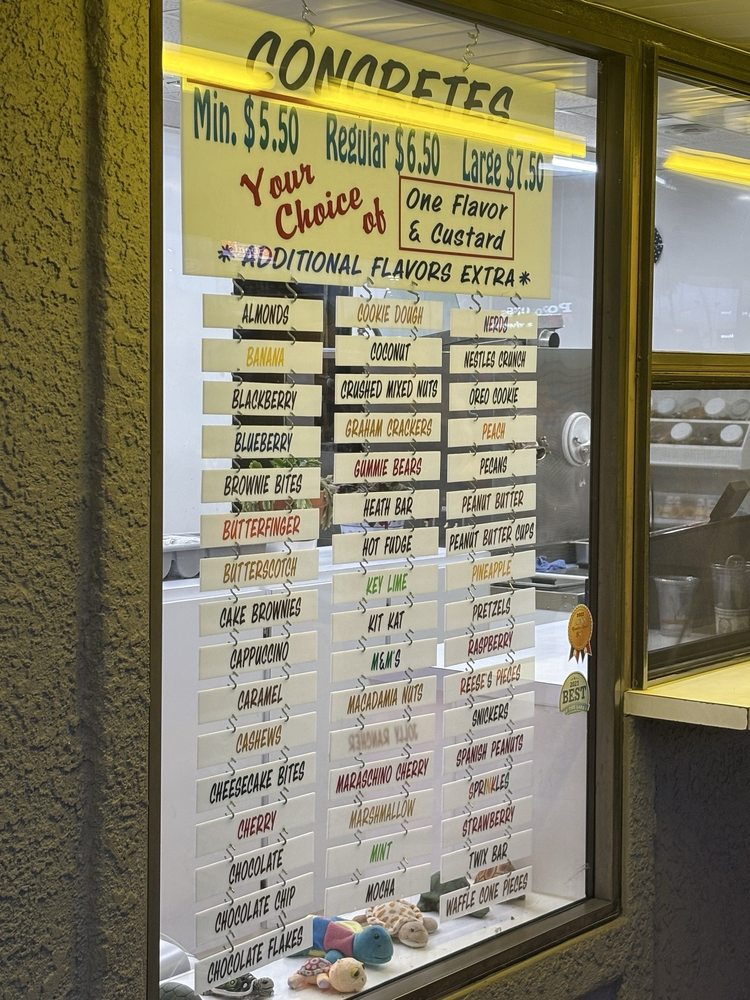 CONCRETES
Min. $5.50 Regular $6.50 Large $7.50
Your Choice of
One Flavor
& Custard
* ADDITIONAL FLAVORS EXTRA *
ALMONDS
BANANA
BLACKBERRY
BLUEBERRY
BROWNIE BITES
BUTTERFINGER
BUTTERSCOTCH
CAKE BROWNIES
CAPPUCCINO
CARAMEL
CASHEWS
CHEESECAKE BITES
CHERRY
CHOCOLATE
CHOCOLATE CHIP
CHOCOLATE FLAKES
COOKIE DOUGH
COCONUT
CRUSHED MIXED NUTS
GRAHAM CRACKERS
GUMMIE BEARS
HEATH BAR
HOT FUDGE
KEY LIME
KIT KAT
M&M'S
MACADAMIA NUTS
JOLLY RANCHER
MARASCHINO CHERRY
MARSHMALLOW
MINT
MOCHA
NERDS
NESTLES CRUNCH
OREO COOKIE
PEACH
PECANS
PEANUT BUTTER
PEANUT BUTTER CUPS
PINEAPPLE
PRETZELS
RASPBERRY
REESE'S PIECES
SNICKERS
SPANISH PEANUTS
SPRINKLES
STRAWBERRY
TWIX BAR
WAFFLE CONE PIECES
BEST